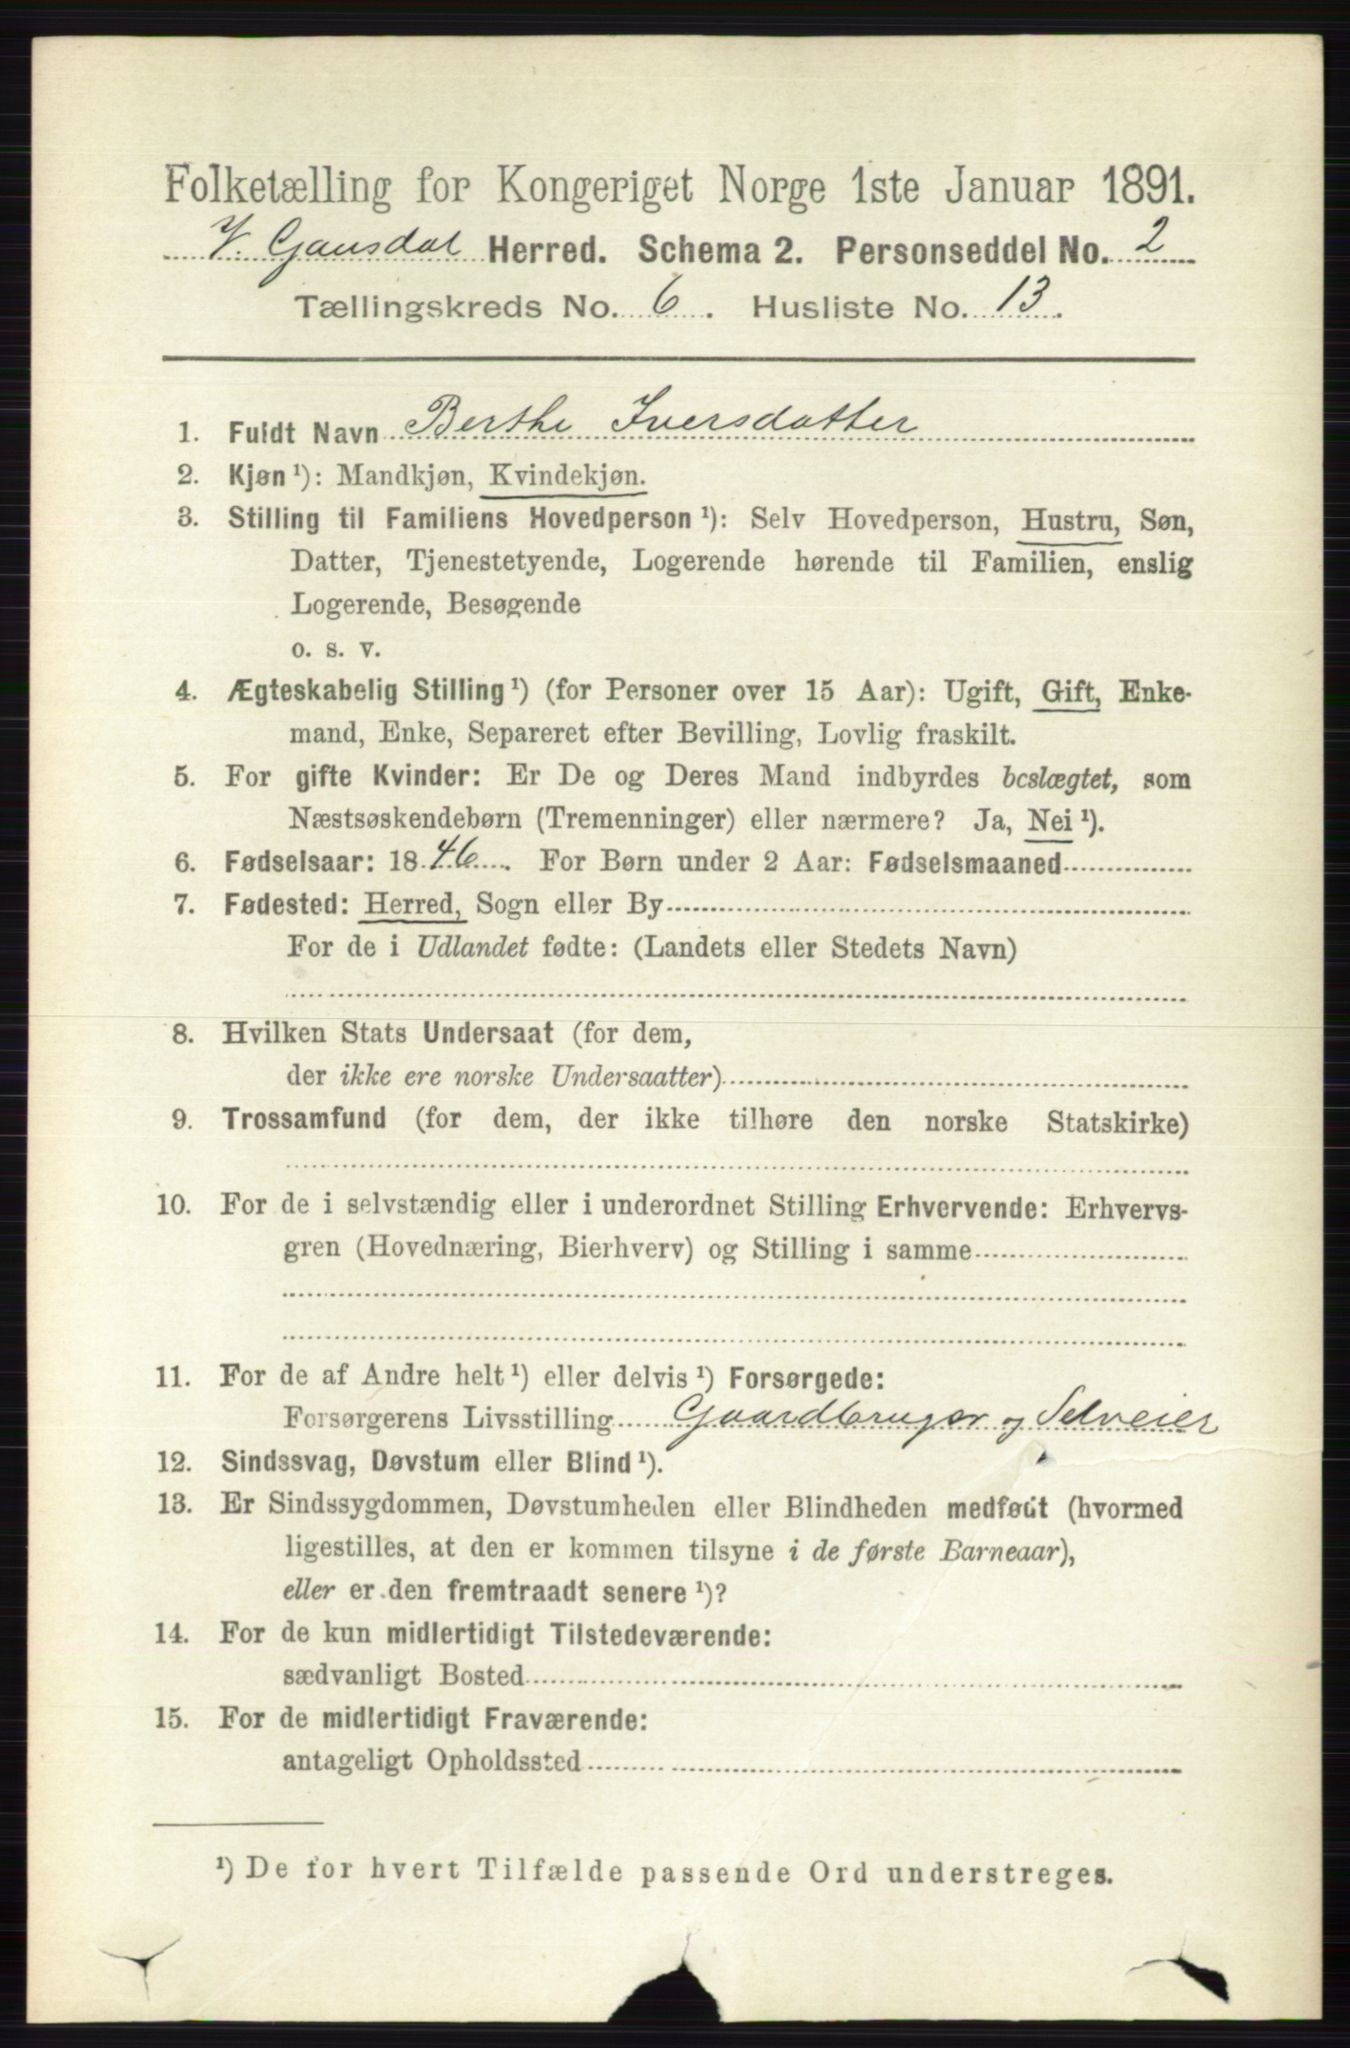 Folketælling for Kongeriget Norge 1ste Januar 1891.
V. Gausdal Herred. Schema 2. Personseddel No. 2
Tællingskreds No. 6. Husliste No. 13.
1. Fuldt Navn Berthe Iversdatter
2. Kjøn ¹): Mandkjøn, Kvindekjøn.
3. Stilling til Familiens Hovedperson ¹): Selv Hovedperson, Hustru, Søn,
Datter, Tjenestetyende, Logerende hørende til Familien, enslig
Logerende, Besøgende
o. s. v.
4. Ægteskabelig Stilling ¹) (for Personer over 15 Aar): Ugift, Gift, Enke-
mand, Enke, Separeret efter Bevilling, Lovlig fraskilt.
5. For gifte Kvinder: Er De og Deres Mand indbyrdes beslægtet, som
Næstsøskendebørn (Tremenninger) eller nærmere? Ja, Nei ¹).
6. Fødselsaar: 1846. For Børn under 2 Aar: Fødselsmaaned
7. Fødested: Herred, Sogn eller By
For de i Udlandet fødte: (Landets eller Stedets Navn)
8. Hvilken Stats Undersaat (for dem,
der ikke ere norske Undersaatter)
9. Trossamfund (for dem, der ikke tilhøre den norske Statskirke)
10. For de i selvstændig eller i underordnet Stilling Erhvervende: Erhvervs-
gren (Hovednæring, Bierhverv) og Stilling i samme
11. For de af Andre helt ¹) eller delvis ¹) Forsørgede:
Forsørgerens Livsstilling Gaardbruger og Selveier
12. Sindssvag, Døvstum eller Blind ¹).
13. Er Sindssygdommen, Døvstumheden eller Blindheden medfødt (hvormed
ligestilles, at den er kommen tilsyne i de første Barneaar),
eller er den fremtraadt senere ¹)?
14. For de kun midlertidigt Tilstedeværende:
sædvanligt Bosted
15. For de midlertidigt Fraværende:
antageligt Opholdssted
¹) De for hvert Tilfælde passende Ord understreges.